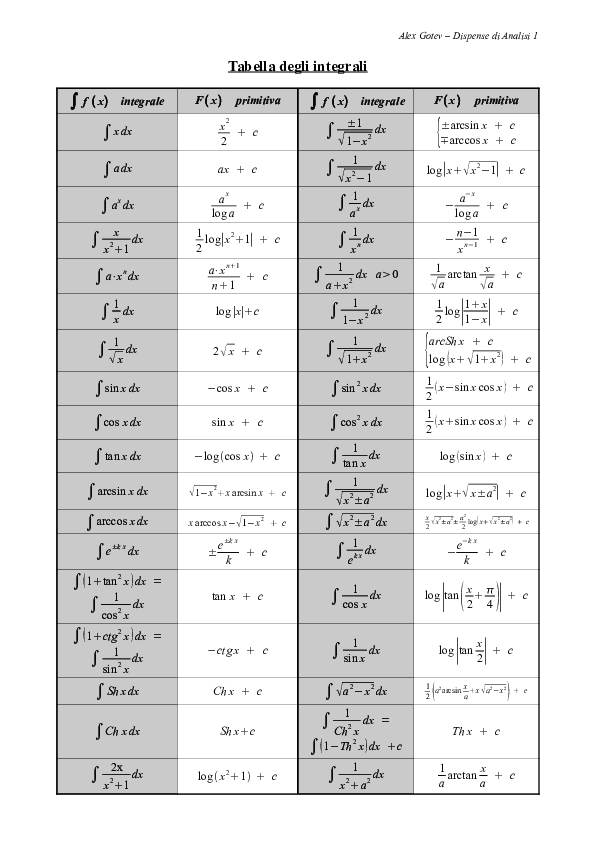 Alex Gotev – Dispense di Analisi 1
Tabella degli integrali
∫ f(x) integrale | F(x) primitiva | ∫ f(x) integrale | F(x) primitiva
∫ x dx | x²/2 + c | ∫ ±1/√(1−x²) dx | {±arcsin x + c ∓arccos x + c
∫ a dx | ax + c | ∫ 1/√(x²−1) dx | log|x+√(x²−1)| + c
∫ aˣ dx | aˣ/log a + c | ∫ 1/aˣ dx | −a⁻ˣ/log a + c
∫ x/(x²+1) dx | 1/2 log|x²+1| + c | ∫ 1/xⁿ dx | −(n−1)/xⁿ⁻¹ + c
∫ a·xⁿ dx | a·xⁿ⁺¹/(n+1) + c | ∫ 1/(a+x²) dx a>0 | 1/√a arctan x/√a + c
∫ 1/x dx | log|x|+c | ∫ 1/(1−x²) dx | 1/2 log|(1+x)/(1−x)| + c
∫ 1/√x dx | 2√x + c | ∫ 1/√(1+x²) dx | {arcSh x + c log(x+√(1+x²)) + c
∫ sin x dx | −cos x + c | ∫ sin² x dx | 1/2 (x−sin x cos x) + c
∫ cos x dx | sin x + c | ∫ cos² x dx | 1/2 (x+sin x cos x) + c
∫ tan x dx | −log(cos x) + c | ∫ 1/tan x dx | log(sin x) + c
∫ arcsin x dx | √(1−x²)+x arcsin x + c | ∫ 1/√(x²±a²) dx | log|x+√(x±a²)| + c
∫ arccos x dx | x arccos x−√(1−x²) + c | ∫ √(x²±a²) dx | x/2 √(x²±a²) ± a²/2 log(x+√(x²±a²)) + c
∫ e^(±kx) dx | ±e^(±kx)/k + c | ∫ 1/e^(kx) dx | −e^(−kx)/k + c
∫ (1+tan² x) dx = ∫ 1/cos² x dx | tan x + c | ∫ 1/cos x dx | log|tan(x/2+π/4)| + c
∫ (1+ctg² x) dx = ∫ 1/sin² x dx | −ctgx + c | ∫ 1/sin x dx | log|tan x/2| + c
∫ Sh x dx | Ch x + c | ∫ √(a²−x²) dx | 1/2 (a² arcsin x/a + x √(a²−x²)) + c
∫ Ch x dx | Sh x+c | ∫ 1/Ch² x dx = ∫ (1−Th² x) dx +c | Th x + c
∫ 2x/(x²+1) dx | log(x²+1) + c | ∫ 1/(x²+a²) dx | 1/a arctan x/a + c